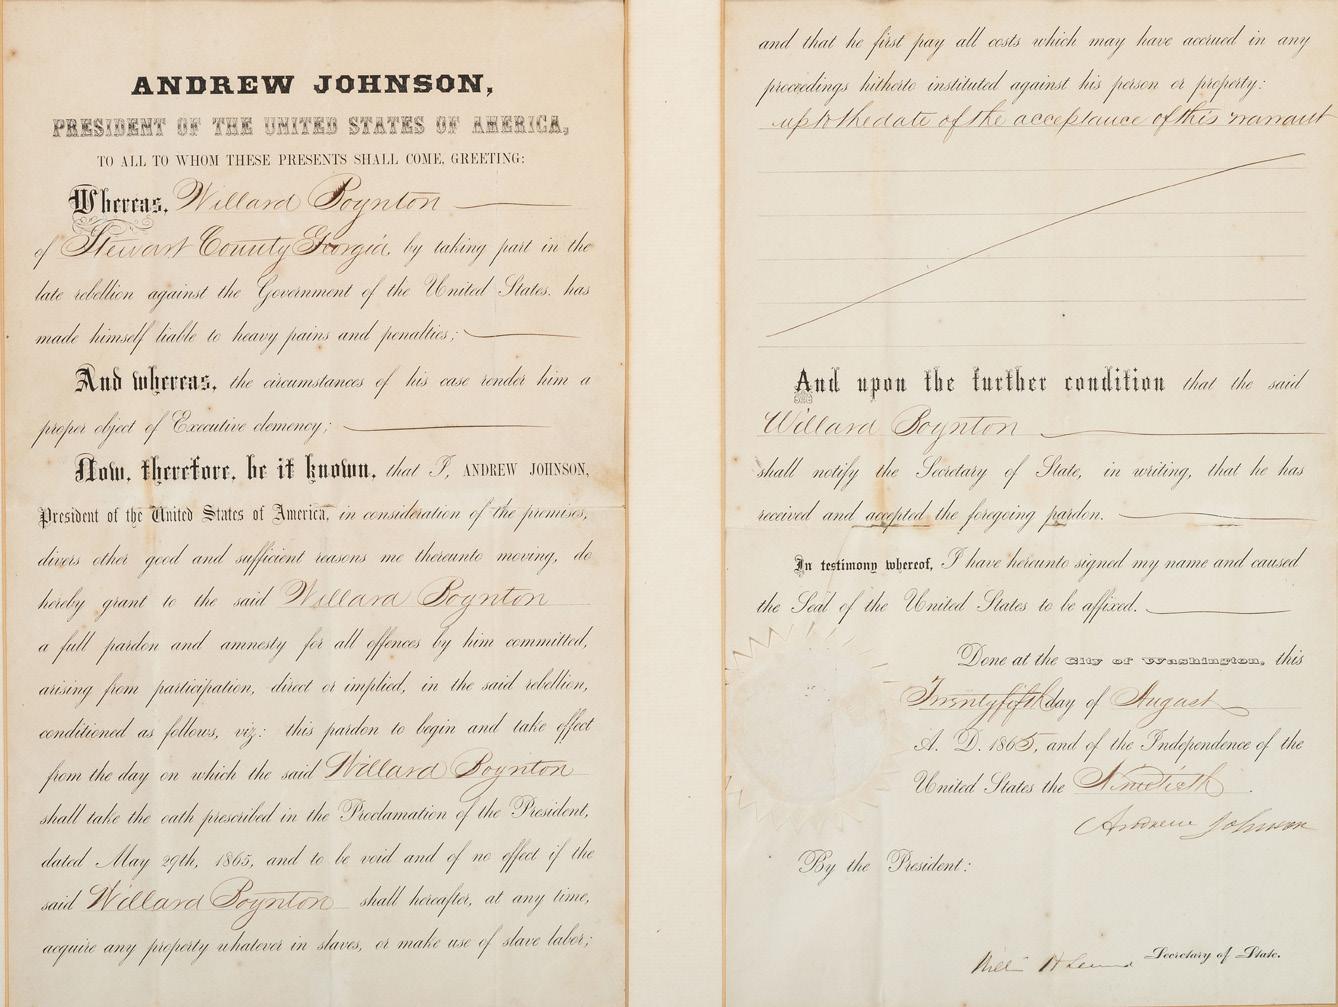 ANDREW JOHNSON,
PRESIDENT OF THE UNITED STATES OF AMERICA,
TO ALL TO WHOM THESE PRESENTS SHALL COME, GREETING:
Whereas, Willard Boynton
of Stewart County Georgia, by taking part in the
late rebellion against the Government of the United States, has
made himself liable to heavy pains and penalties;
And whereas, the circumstances of his case render him a
proper object of Executive clemency;
Now, therefore, be it known, that I, ANDREW JOHNSON,
President of the United States of America, in consideration of the premises,
divers other good and sufficient reasons me thereunto moving, do
hereby grant to the said Willard Boynton
a full pardon and amnesty for all offences by him committed,
arising from participation, direct or implied, in the said rebellion,
conditioned as follows, viz: this pardon to begin and take effect
from the day on which the said Willard Boynton
shall take the oath prescribed in the Proclamation of the President,
dated May 29th, 1865, and to be void and of no effect if the
said Willard Boynton shall hereafter, at any time,
acquire any property whatever in slaves, or make use of slave labor;
and that he first pay all costs which may have accrued in any
proceedings hitherto instituted against his person or property:
up to the date of the acceptance of this warrant
And upon the further condition that the said
Willard Boynton
shall notify the Secretary of State, in writing, that he has
received and accepted the foregoing pardon.
In testimony whereof, I have hereunto signed my name and caused
the Seal of the United States to be affixed.
Done at the City of Washington, this
Twenty fifth day of August
A. D. 1865, and of the Independence of the
United States the Ninetieth.
Andrew Johnson
By the President:
Secretary of State.